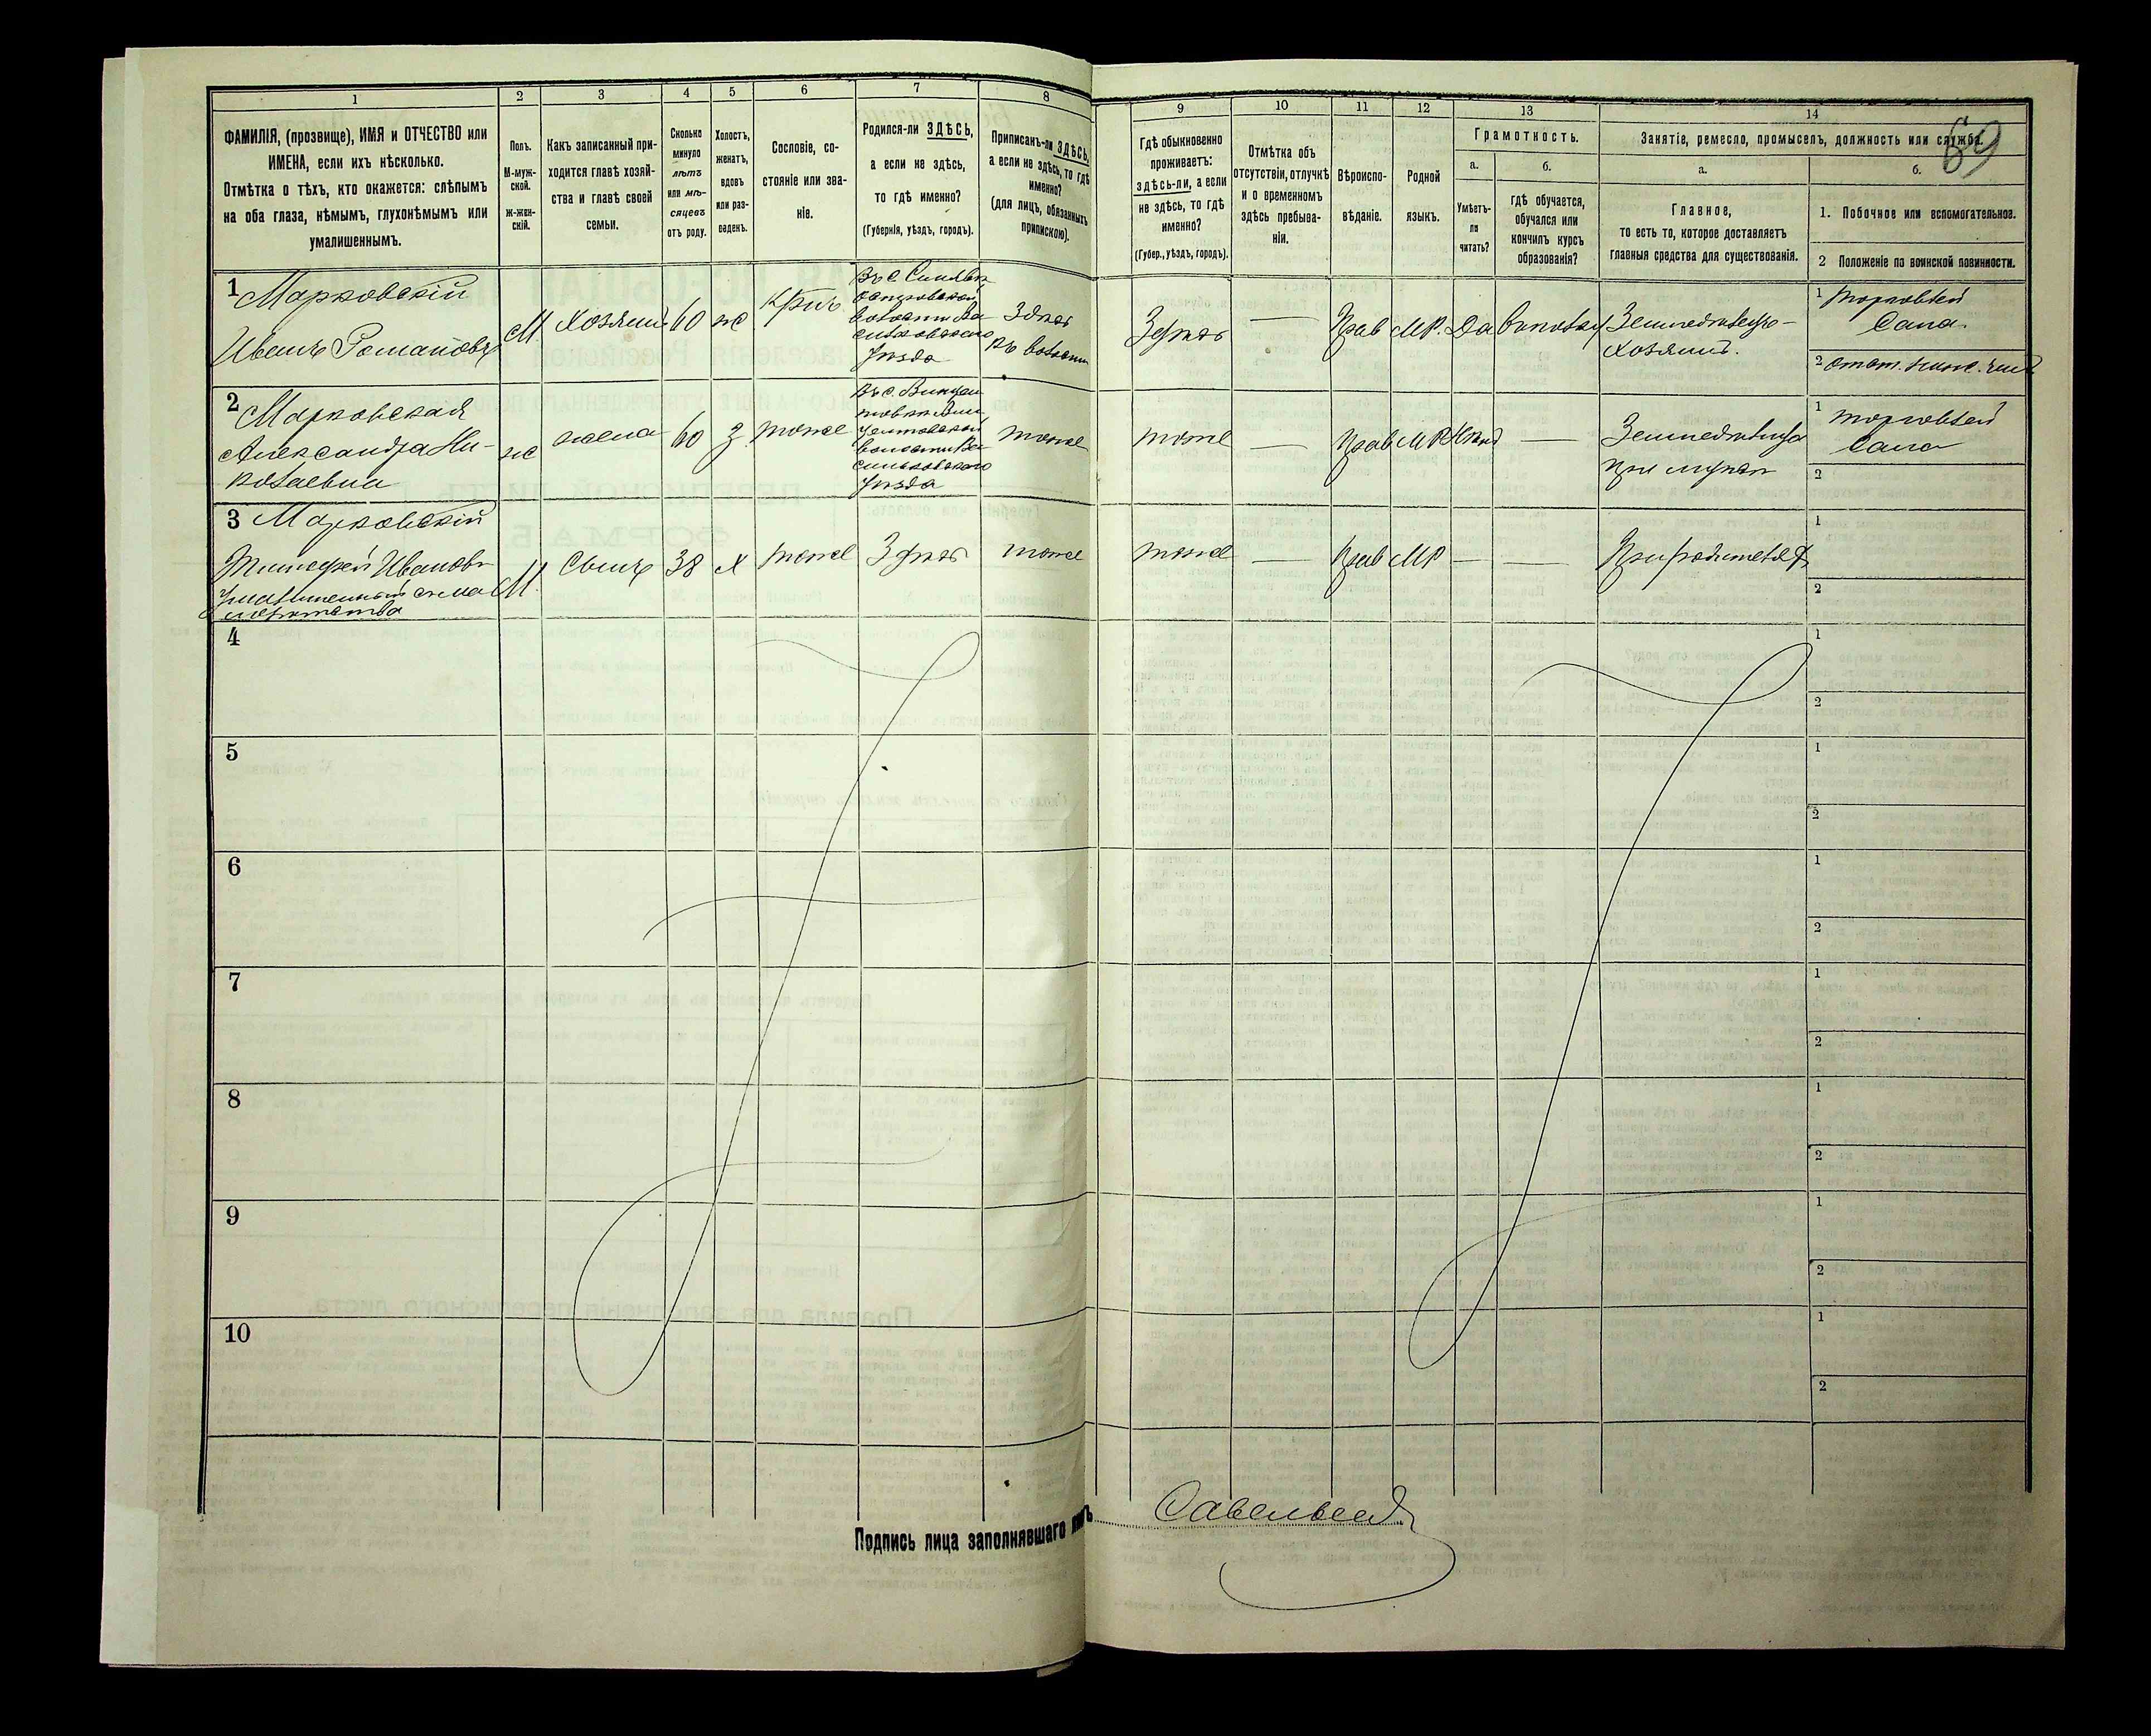 1
2
3
4
5
6
7
8
ФАМИЛІЯ, (прозвище), ИМЯ и ОТЧЕСТВО или
ИМЕНА, если ихъ нѣсколько.
Отмѣтка о тѣхъ, кто окажется: слѣпымъ
на оба глаза, нѣмымъ, глухонѣмымъ или
умалишеннымъ.
Полъ.
М-муж-
ской.
Ж-жен-
скій.
Какъ записанный при-
ходится главѣ хозяй-
ства и главѣ своей
семьи.
Сколько
минуло
лѣтъ
или мѣ-
сяцевъ
отъ роду.
Холостъ,
женатъ,
вдовъ
или раз-
веденъ.
Сословіе, со-
стояніе или зва-
ніе.
Родился-ли ЗДѢСЬ,
а если не здѣсь,
то гдѣ именно?
(Губернія, уѣздъ, городъ).
Приписанъ-ли ЗДѢСЬ,
а если не здѣсь, то гдѣ
именно?
(для лицъ, обязанныхъ
припискою).
1
Марковскій
Иванъ Романовъ
М.
Хозяинъ
60
ж
Крнъ
волости Ва
сильковскаго
Уѣзда
Здѣсь
въ волости
2
Марковская
Александра Ни-
колаевна
ж
жена
60
З.
тоже
волости Ва
сильковскаго
Уѣзда
тоже
3
Марковскій
Тимофей Ивановъ
Умалишенный съ ма
лолѣтства
М.
Сынъ
38
Х
тоже
Здѣсь
тоже
4
5
6
7
8
9
10
Подпись лица заполнявшаго
9
10
11
12
13
14
69
Гдѣ обыкновенно
проживаетъ:
здѣсь-ли, а если
не здѣсь, то гдѣ
именно?
(Губер., уѣздъ, городъ).
Отмѣтка объ
отсутствіи, отлучкѣ
и о временномъ
здѣсь пребыва-
ніи.
Вѣроиспо-
вѣданіе.
Родной
языкъ.
Грамотность.
а.
б.
Умѣетъ-
ли
читать?
гдѣ обучается,
обучался или
кончилъ курсъ
образованія?
Занятіе, ремесло, промыселъ, должность или служба.
а.
б.
Главное,
то есть то, которое доставляетъ
главныя средства для существованія.
1. Побочное или вспомогательное.
2 Положеніе по воинской повинности.
Здѣсь
—
Прав
МР.
Да
Земледѣлецъ-
хозяинъ.
1 торговлей
Сала.
2
тоже
—
Прав
МР
—
Земледѣлица
при мужѣ
1 торговлей
Сала
2
тоже
—
Прав
МР
—
—
При родителѣ
1
2
1
2
1
2
1
2
1
2
1
2
1
2
1
2
Савельевъ